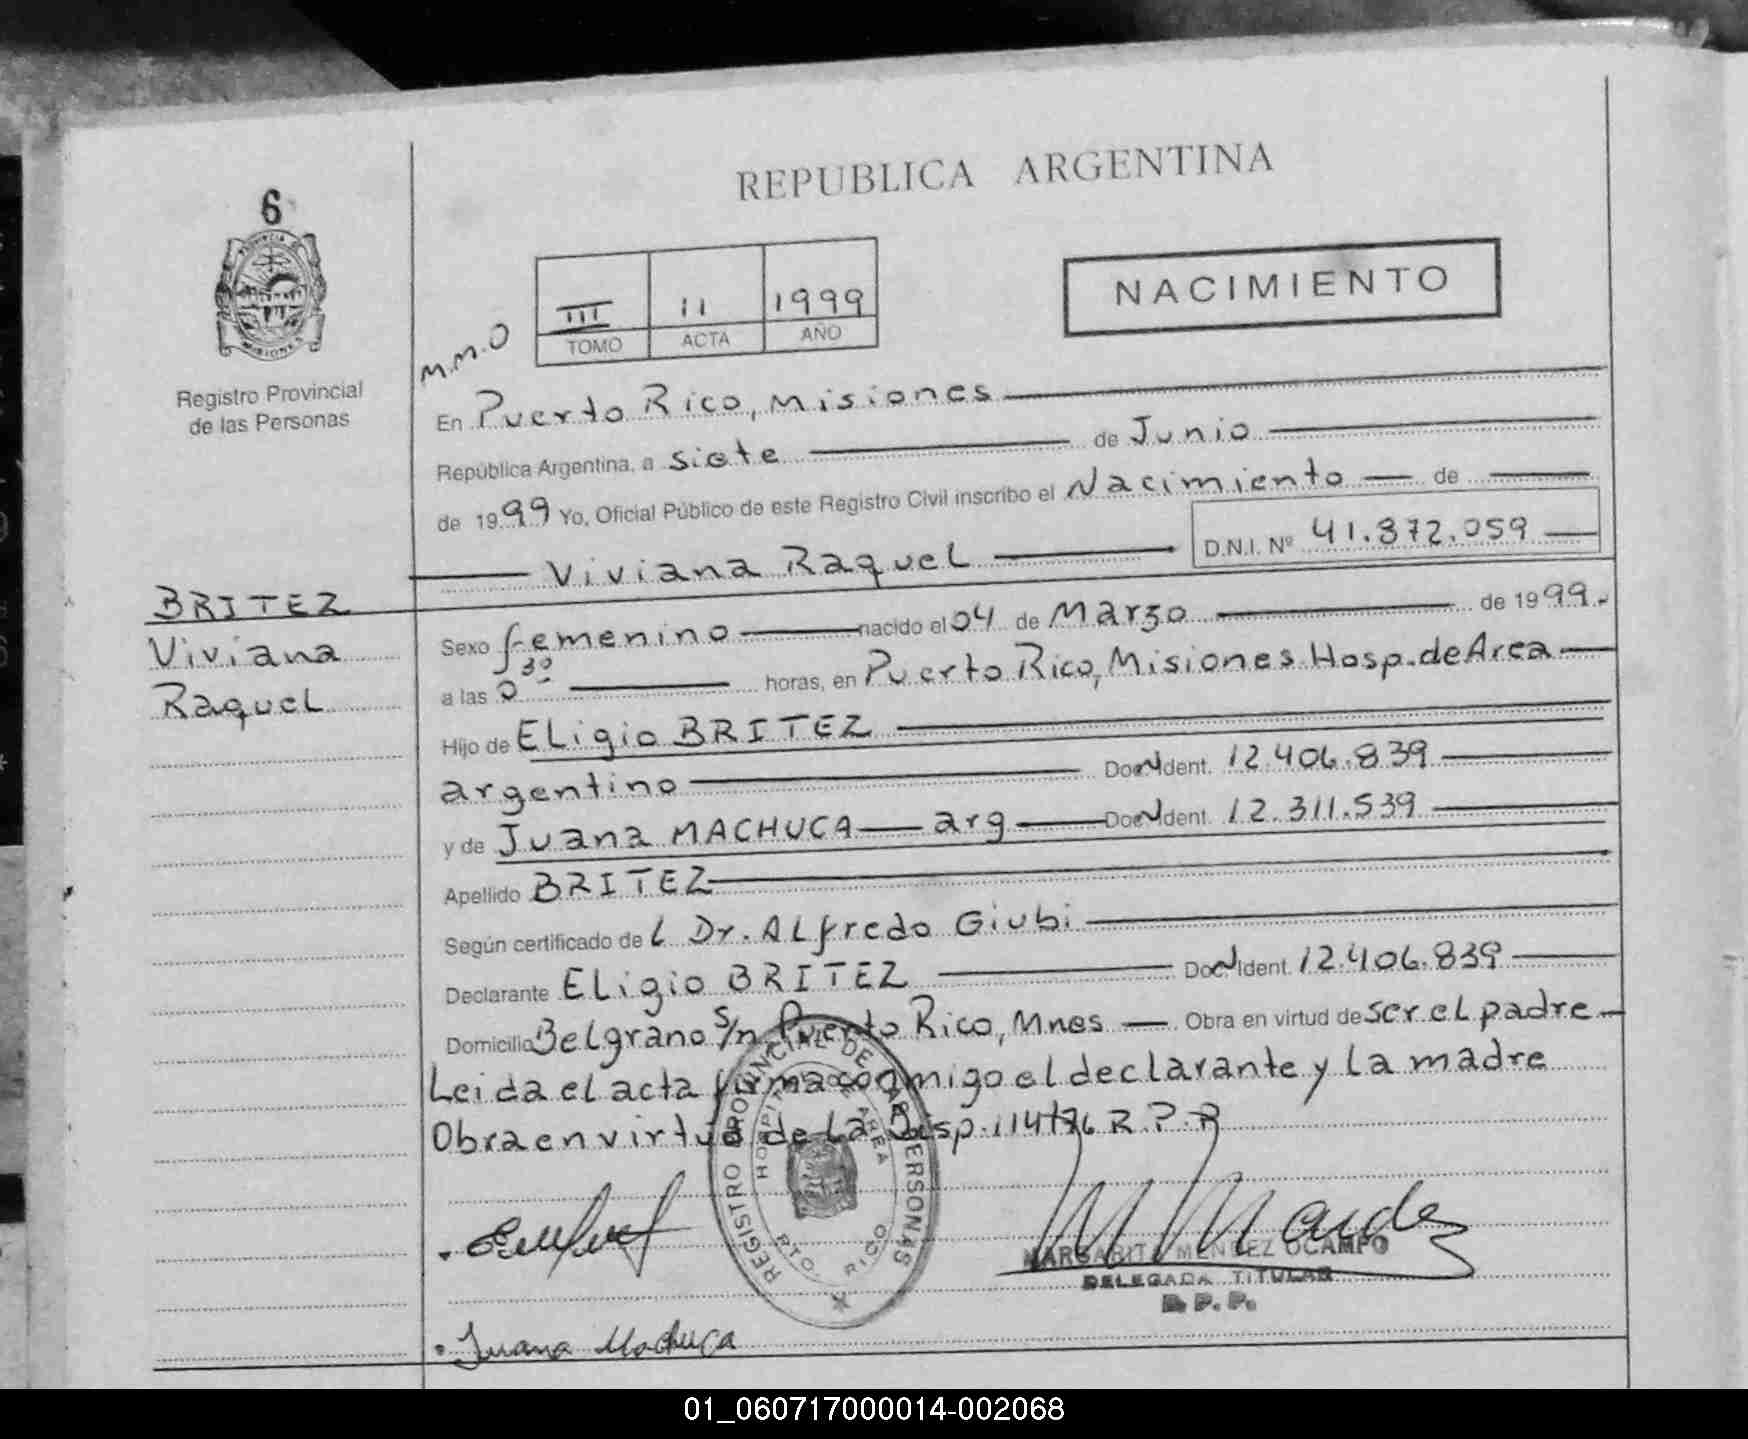 REPUBLICA ARGENTINA
6
PROVINCIA DE
MISIONES
Registro Provincial
de las Personas
NACIMIENTO
III 11 1999
TOMO ACTA AÑO
M.M.O
En Puerto Rico, Misiones
República Argentina, a siete de Junio
de 1999 Yo, Oficial Público de este Registro Civil inscribo el Nacimiento de
Viviana Raquel D.N.I. Nº 41.872.059
BRITEZ
Viviana
Raquel
Sexo femenino nacido el 04 de Marzo de 1999.
a las 0 30 horas, en Puerto Rico, Misiones Hosp. de Area
Hijo de ELigio BRITEZ
argentino Doc. Ident. 12.406.839
y de Juana MACHUCA arg Doc. Ident. 12.311.539
Apellido BRITEZ
Según certificado del Dr. ALfredo Giubi
Declarante ELigio BRITEZ Doc. Ident. 12.406.839
Domicilio Belgrano s/n Puerto Rico, Mnes Obra en virtud de ser el padre
Leida el acta firma conmigo el declarante y la madre
Obra en virtud de La Disp. 114/86 R.P.P
REGISTRO PROVINCIAL DE LAS PERSONAS
HOSPITAL DE AREA
PTO. RICO
MARGARITA MENDEZ OCAMPO
DELEGADA TITULAR
R. P. P.
Juana Machuca
01_060717000014-002068